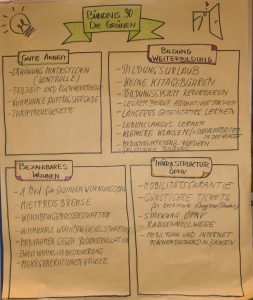 BÜNDNIS 90
DIE GRÜNEN
GUTE ARBEIT
- ERHÖHUNG MINDESTLOHN
(KONTROLLE)
- TEILZEIT UND RÜCKKEHRRECHT
- KOMMUNALE AUFTRAGSVERGABE
- TARIFTREUEGESETZ
BILDUNG
WEITERBILDUNG
- BILDUNGSURLAUB
- KEINE KITAGEBÜHREN
- BILDUNGSSYSTEM REFORMIEREN
- LEHRERBERUF ATTRAKTIVER MACHEN
- LÄNGERES GEMEINSAMES LERNEN
- LEBENSLANGES LERNEN
- KLEINERE KLASSEN
- MEDIENKOMPETENZ FÖRDERN
POLITISCHE BILDUNG
BEZAHLBARES
WOHNEN
- 1 MRD FÜR SOZIALEN WOHNUNGSBAU
- MIETPREISBREMSE
- WOHNBAUGENOSSENSCHAFTEN
- KOMMUNALE WOHNBAUGESELLSCHAFTEN
- MAßNAHMEN GEGEN BODENSPEKULATION
- ZWEITWOHNSITZBESTEUERUNG
- MEHRGENERATIONENHÄUSER
INFRASTRUKTUR
ÖPNV
- MOBILITÄTSGARANTIE
- GÜNSTIGERE TICKETS
- STÄRKUNG ÖPNV
- RADSCHNELLWEGE
- MOBILFUNK UND INTERNET
FLÄCHENDECKEND IN BAYERN